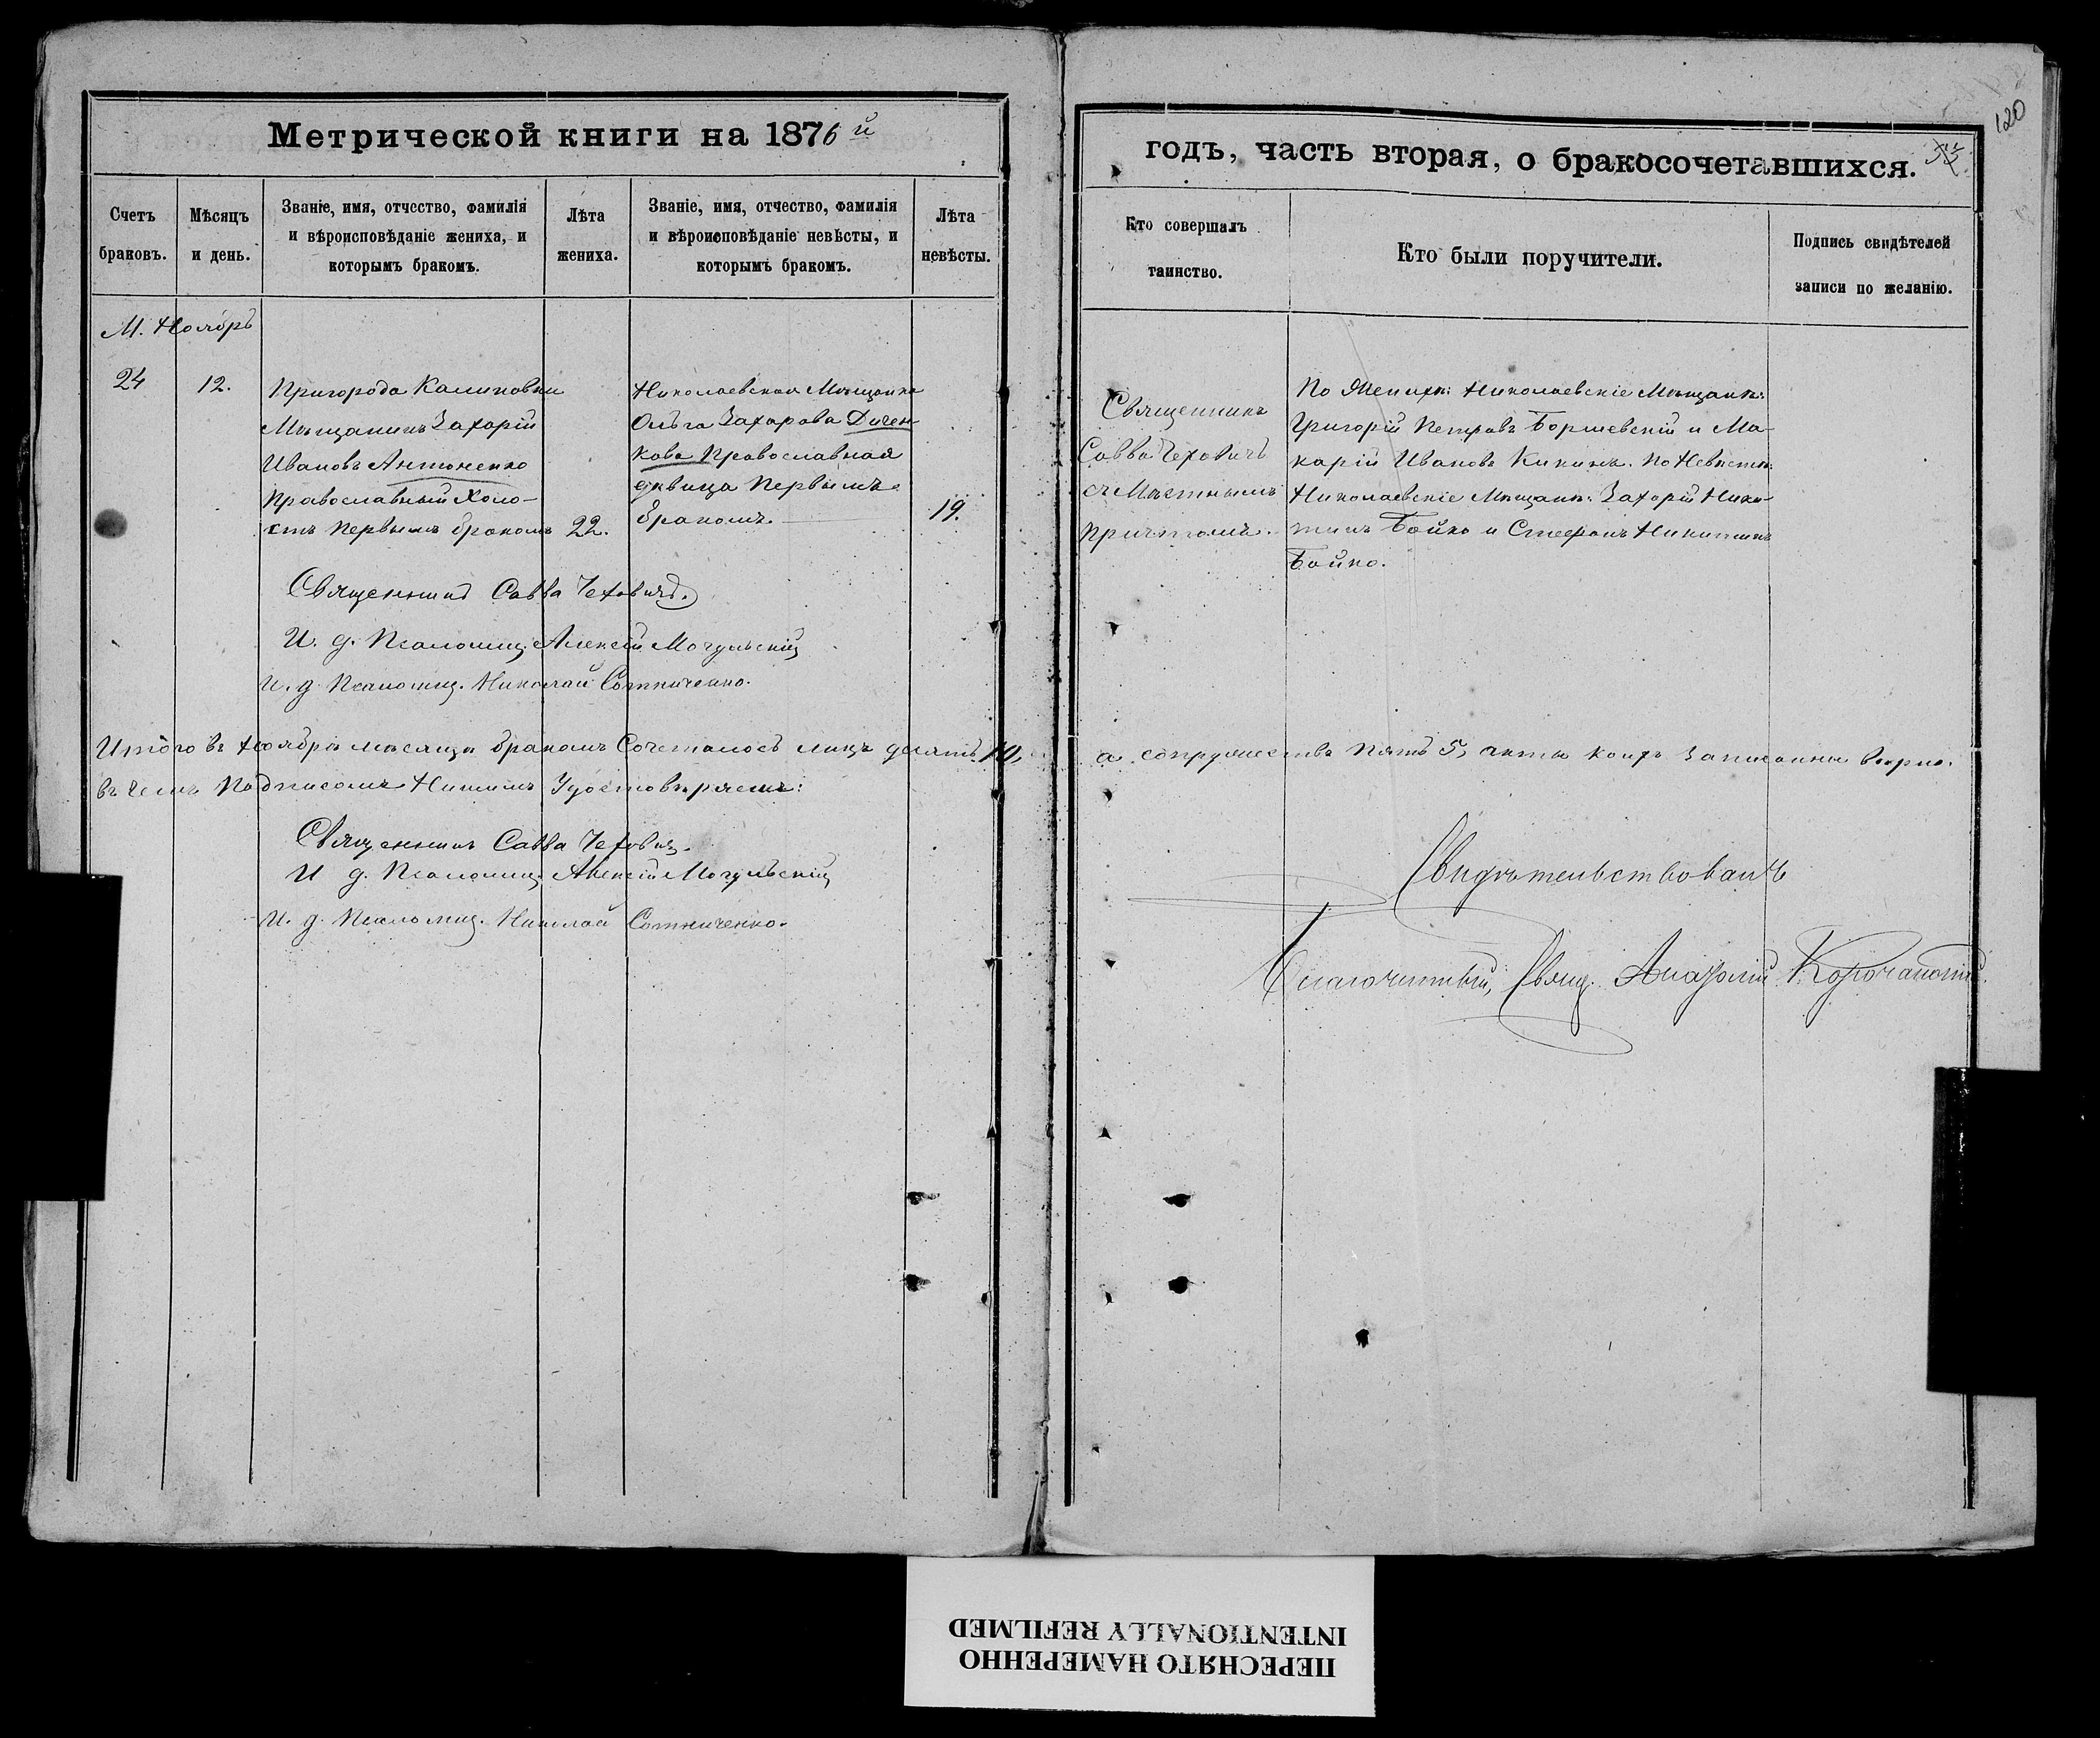 Метрической книги на 1876 й
годъ, часть вторая, о бракосочетавшихся.
120
Счетъ
браковъ.
Мѣсяцъ
и день.
Званіе, имя, отчество, фамилія
и вѣроисповѣданіе жениха, и
которымъ бракомъ.
Лѣта
жениха.
Званіе, имя, отчество, фамилія
и вѣроисповѣданіе невѣсты, и
которымъ бракомъ.
Лѣта
невѣсты.
Кто совершалъ
таинство.
Кто были поручители.
Подпись свидѣтелей
записи по желанію.
М. Ноябрь
24
12.
Пригорода Калиновки
Мѣщанинъ Захарій
Ивановъ Антоненко
Православный Холо-
стъ Первымъ бракомъ
22.
Николаевская Мѣщанка
Ольга Захарова Дичен-
кова Православная
дѣвица Первымъ
бракомъ.
19.
Священникъ
Савва Чеховичъ
съ Мѣстнымъ
Причтомъ.
По Женихѣ: Николаевскіе Мѣщане:
Григорій Петровъ Боршевскій и Ма-
карій Ивановъ Кикинъ. По Невѣстѣ:
Николаевскіе Мѣщане: Захарій Ники-
тинъ Бойко и Стефанъ Никитинъ
Бойко.
Священникъ Савва Чеховичъ.
И. д. Псаломщ. Алексѣй Могульскій
И. д. Псаломщ. Николай Сотниченко.
Итого въ Ноябрѣ мѣсяцѣ бракомъ Сочеталось лицъ десять 10,
а супружествъ Пять 5, акты коихъ Записаны вѣрно.
въ чемъ Подписомъ Нашимъ Удостовѣряемъ:
Священникъ Савва Чеховичъ.
И д. Псаломщ. Алексѣй Могульскій
И. д. Псаломщ. Николай Сотниченко.
Свидѣтельствовалъ
Благочинный, Свящ.
ПЕРЕСНЯТО НАМЕРЕННО
INTENTIONALLY REFILMED